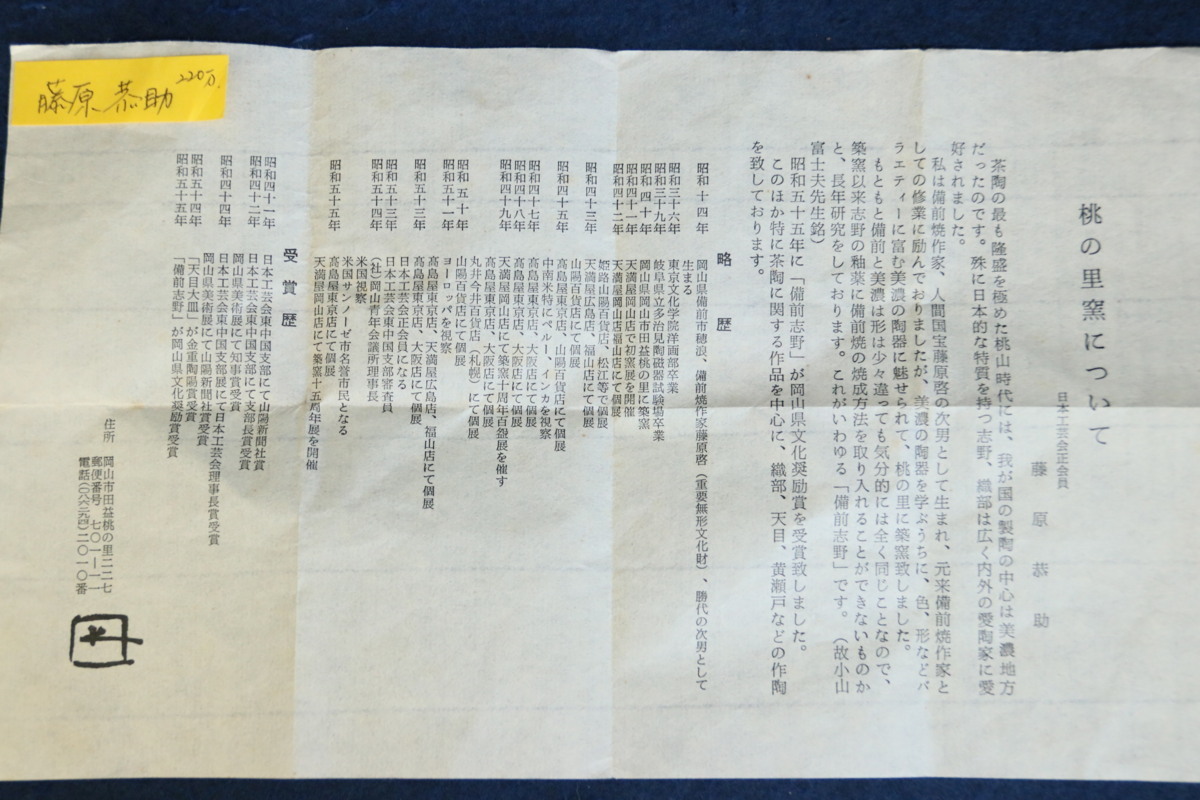 藤原 恭助 220万
桃の里窯について
日本工芸会正会員
藤原恭助
茶陶の最も隆盛を極めた桃山時代には、我が国の製陶の中心は美濃地方
だったのです。殊に日本的な特質を持つ志野、織部は広く内外の愛陶家に愛
好されました。
私は備前焼作家、人間国宝藤原啓の次男として生まれ、元来備前焼作家と
しての修業に励んでおりましたが、美濃の陶器を学ぶうちに、色、形などバ
ラエティーに富む美濃の陶器に魅せられて、桃の里に築窯致しました。
もともと備前と美濃は形は少々違っても気分的には全く同じことなので、
築窯以来志野の釉薬に備前焼の焼成方法を取り入れることができないものか
と、長年研究をしております。これがいわゆる「備前志野」です。（故小山
富士夫先生銘）
昭和五十五年に「備前志野」が岡山県文化奨励賞を受賞致しました。
このほか特に茶陶に関する作品を中心に、織部、天目、黄瀬戸などの作陶
を致しております。
略歴
昭和十四年 岡山県備前市穂浪、備前焼作家藤原啓（重要無形文化財）、勝代の次男として
生まる
昭和三十六年 東京文化学院洋画部卒業
昭和三十九年 岐阜県立多治見陶磁器試験場卒業
昭和四十年 岡山県岡山市田益桃の里に築窯
昭和四十一年 天満屋岡山店で初窯展を開催
昭和四十二年 天満屋岡山店、福山店にて個展
姫路山陽百貨店、松江等で個展
昭和四十三年 天満屋広島店、福山店にて個展
山陽百貨店にて個展
昭和四十五年 高島屋東京店、山陽百貨店にて個展
中南米特にペルー、インカを視察
昭和四十七年 高島屋東京店、大阪店にて個展
昭和四十八年 高島屋東京店、大阪店にて個展
昭和四十九年 天満屋岡山店にて築窯十周年百盌展を催す
高島屋東京店、大阪店にて個展
丸井今井百貨店（札幌）にて個展
昭和五十年 山陽百貨店にて個展
昭和五十一年 ヨーロッパを視察
高島屋東京店、天満屋広島店、福山店にて個展
昭和五十三年 高島屋東京店、大阪店にて個展
日本工芸会正会員になる
昭和五十三年 日本工芸会東中国支部審査員
昭和五十四年 （社）岡山青年会議所理事長
米国視察
米国サンノーゼ市名誉市民となる
昭和五十五年 高島屋東京店にて個展
天満屋岡山店にて築窯十五周年展を開催
受賞歴
昭和四十一年 日本工芸会東中国支部にて山陽新聞社賞
昭和四十二年 日本工芸会東中国支部にて支部長賞受賞
岡山県美術展にて知事賞受賞
昭和四十四年 日本工芸会東中国支部展にて日本工芸会理事長賞受賞
岡山県美術展にて山陽新聞社賞受賞
昭和五十四年 「天目大皿」が金重陶陽賞受賞
昭和五十五年 「備前志野」が岡山県文化奨励賞受賞
住所 岡山市田益桃の里二二七
郵便番号 七〇一―一一
電話（〇八六二九四）二〇一〇番